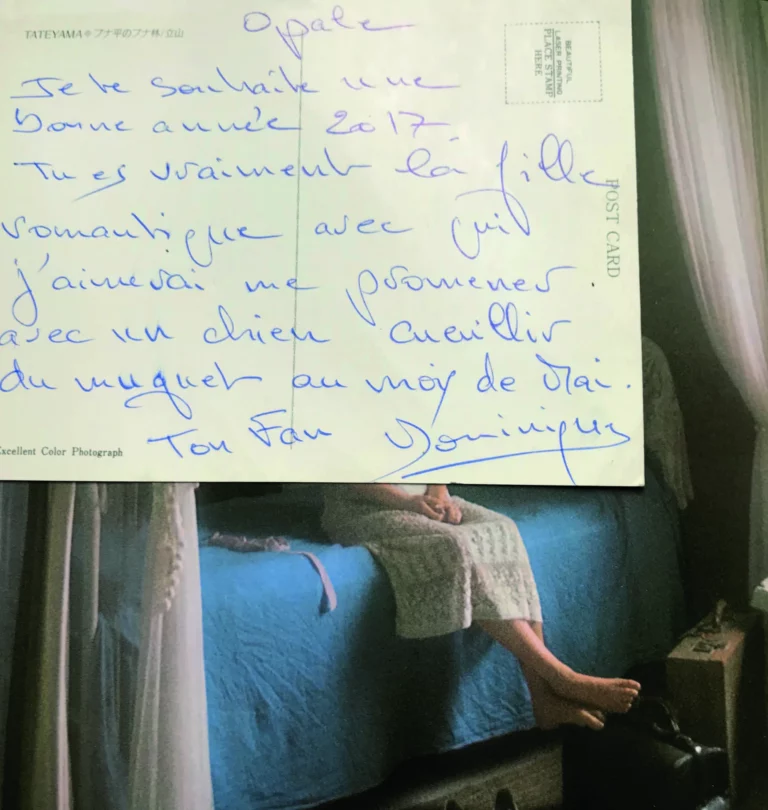 TATEYAMA ブナ平のブナ林/立山
BEAUTIFUL
LASER PRINTING
PLACE STAMP
HERE
POST CARD
Opale
Je te souhaite une
bonne année 2017
Tu es vraiment la fille
romantique avec qui
j'aimerai me promener.
avec un chien cueillir
du muguet au moy de Mai.
Ton Fan Dominique
Excellent Color Photograph